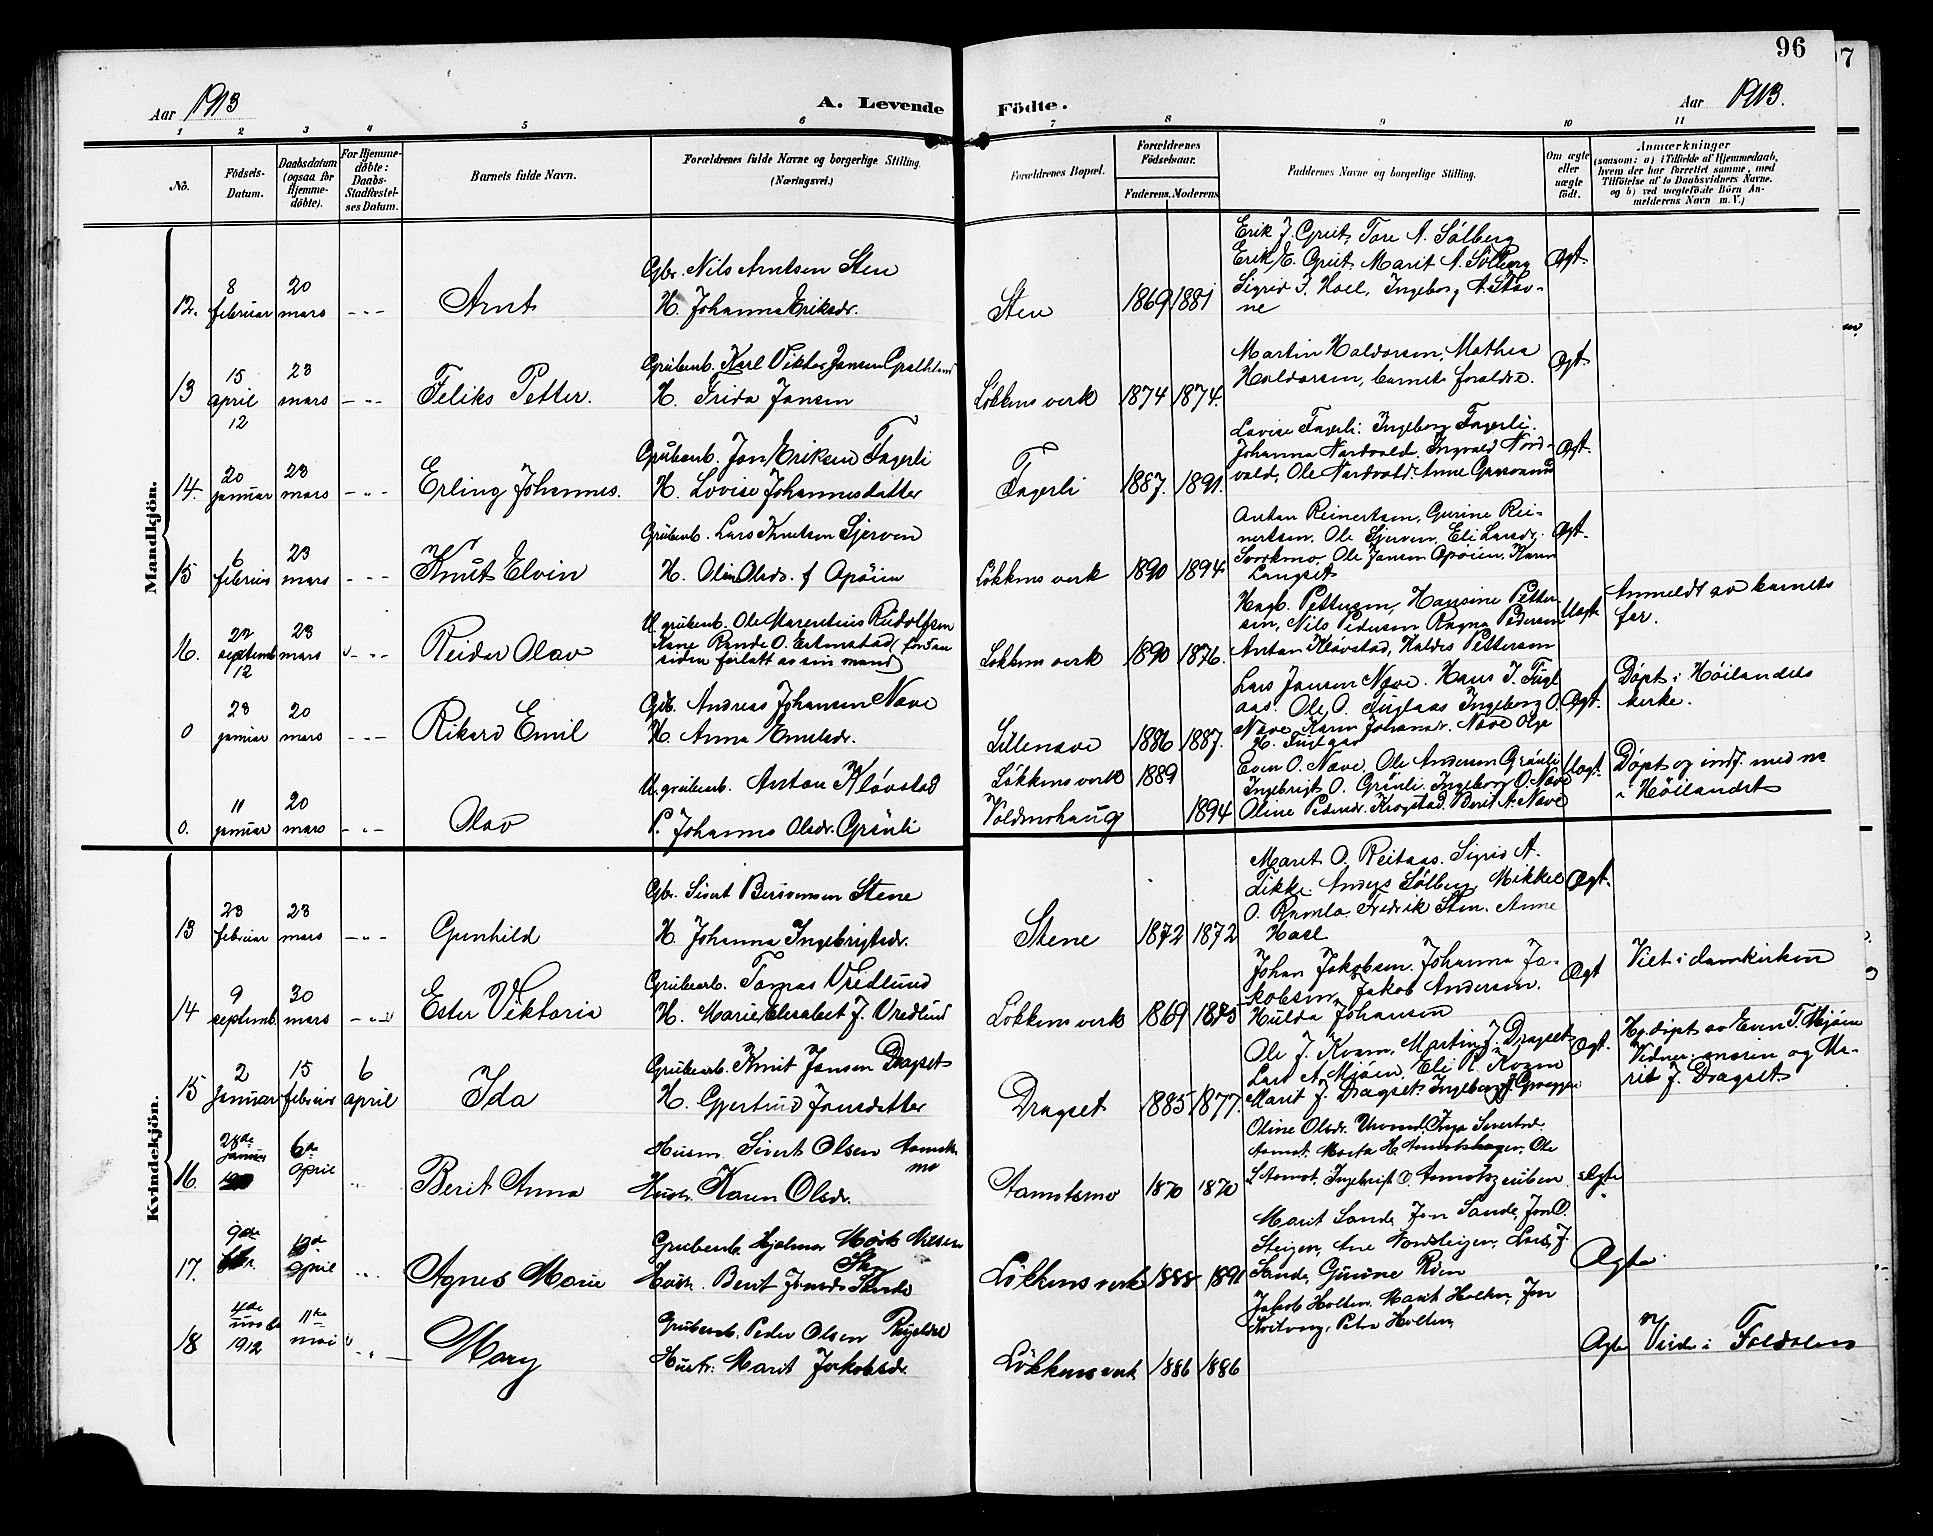 96
Aar 1913
A. Levende Födte.
Aar 1913.
1 2 3 4 5 6 7 8 9 10 11
No.
Födsels-
Datum.
Daabsdatum
(ogsaa for
Hjemme-
döbte).
For Hjemme-
döbte:
Daabs-
Stadfæstel-
ses Datum.
Barnets fulde Navn.
Forældrenes fulde Navne og borgerlige Stilling.
(Næringsvei.)
Forældrenes Bopæl.
Forældrenes
Födselsaar.
Faderens. Moderens
Faddernes Navne og borgerlige Stilling.
Om ægte
eller
uægte
födt.
Anmærkninger
(saasom: a) i Tilfælde af Hjemmedaab,
hvem der har forrettet samme, med
Tilföielse af to Daabsvidners Navne,
og b) ved uægtefödte Börn An-
melderens Navn m. V.)
Mandkjön.
12. 8 februar
20 mars
Arnt
Gbr. Nils Arntsen Sten
H. Johanna Eriksdr.
Sten
1869 1881
Erik J. Grut, Tore A. Sølberg
Erik E. Grut, Marit A. Sølberg
Sigrid J. Hoel, Ingeborg A. Stav-
ne
Ægt.
13 15 april 12
23 mars
Feliks Petter.
Grubearb. Karl Viktor Jansen
H. Frida Jansen
Løkkens verk
1874 1874.
Martin Haldorsen, Mathea
Haldorsen, barnets foreldre.
Ægt.
14. 20 januar
23 mars
Erling Johannes.
Grubearb. Jon Eriksen Fagerli
H. Lovise Johannesdatter
Fagerli
1887. 1891.
Lovise Fagerli. Ingeborg Fagerli.
Johanna Nordvald. Ingvald Nord-
vald, Ole Nordvald. Anne
Ægt.
15 6 februar
23 mars
Knut Elvin
Grubearb. Lars Knutsen Sjerven
H. Olin Olsdr. f
Løkkens verk
1890 1894
Anton Reinertsen, Gurine Rei-
nertsen. Ole Sjerven, Eli Larsdr.
Svorkmo. Ole Jansen Karen
Langset
Ægt.
16. 22 septemb. 1912
23 mars
Reidar Olav
U. grubearb. Ole Marentius Rudolfsen
siden forlatt av sin mand)
Løkkens verk
1890 1876.
Hagb. Pettersen, Petter-
sen, Nils Pedersen Ragna Pedersen
Anton Kløvstad, Haldis Pettersen
Uægte
Anmeldt av barnets
far.
0 28 januar
20 mars
Rikard Emil
Gdb. Andreas Johansen Nave
H. Anna
Lillenave
1886 1887.
Lars Jansen Nave. Hans J. Fugl
aas. Ole O. Fuglaas Ingeborg O.
Nave Karen Johansdr. Nave Olga
H. Fuglaas
Ægt.
Døpt i Høilandets
kirke.
0. 11 januar
20 mars
Olav
U. grubearb. Anton Kløvstad
P. Johanna Olsdr. Grønli
Løkkens verk
Voldmohaug
1889
1894
Even O. Nave, Ole Andersen Grønli
Ingebrigt O. Grønli. Ingeborg O. Nave
Oline Pedersdr. Krogstad. Berit A. Nave
Uægt.
Døpt og indf. med nr
i Høilandet
Kvindekjön.
13 23 februar
23 mars
Gunhild
Gbr. Sivert Stene
H. Johanna Ingebrigtsdr.
Stene
1872 1872
Marit O. Reitaas. Sigrid A.
Anders Sølberg. Mikkel
O. Ramlo. Fredrik Sten. Anne
Hoel
Ægt.
14 9 septemb.
30 mars
Ester Viktoria
Grubearb. Tomas Vredlund
H. Marie Elisabet J. Vredlund
Løkkens verk
1869 1885
Johan Jakobsen. Johanna Ja-
kobsen, Jakob Andersen.
Hulda Johansen
Ægt
Viet i domkirken
15 2 januar
15 februar
6 april
Ida
Grubearb. Knut Jansen Dragset
H. Gjertrud Jonsdatter
Dragset
1885 1877.
Ole J. Kvam, Martin J. Dragset
Lars A. Mjøen, Eli R. Kvam
Marit J. Dragset. Ingeborg J.
Ægt.
Hj.døpt av Even T. Mjøen
Vidner: moren og Ma-
rit J. Dragset
16. 28de januar
6te april
Berit Anna
Husm. Sivert Olsen Aamots
mo
Hustr. Karen Olsdr.
Aamotsmo
1870 1870
Oline Olsdr. Inga Sivertsdr.
Aamot. Marta H. Aamotshagen, Ole
S. Aamot. Ingebrigt O.
Ægte
17. 9de
april
Agnes Marie
Grubearb. Hjalmar Mørk Nilsen
Hustr. Berit Jonsdr. Sande
Løkkens verk
1888 1891
Marit Sande, Jon Sande, Jon O.
Steigen, Ane Nordsteigen, Lars J.
Sande, Gurine Røen
Ægte
18 4de 1912
11te mai
Mary
Grubearb. Peder Olsen
Hustr. Marit Jakobsdr.
Løkkens verk
1886 1886
Jakob Holten. Marit Holten, Jon
Petra Holten,
Ægte
Viede i Foldalen